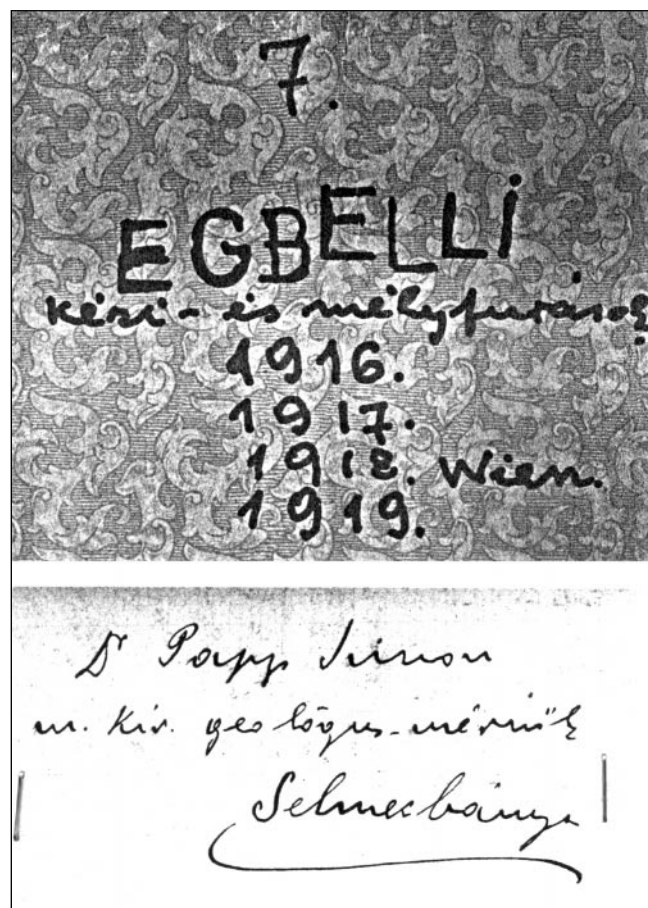 7.
EGBELLi
kézi- és mélyfurások
1916.
1917.
1918. Wien.
1919.
Dr Papp Simon
m. kir. geológus-mérnök
Selmecbánya